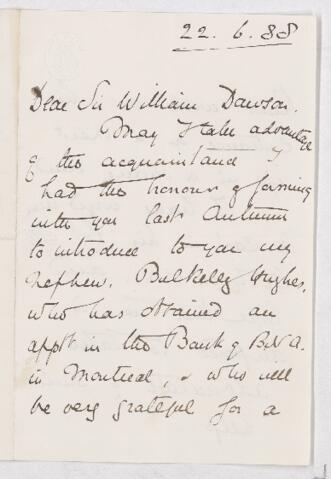 22. 6. 88
Dear Sir William Dawson.
May I take advantage
of the acquaintance I
had the honour of forming
with you last Autumn
to introduce to you my
nephew, Bulkeley Hughes,
who has obtained an
appt in the Bank of B.N.A.
in Montreal, & who will
be very grateful for a